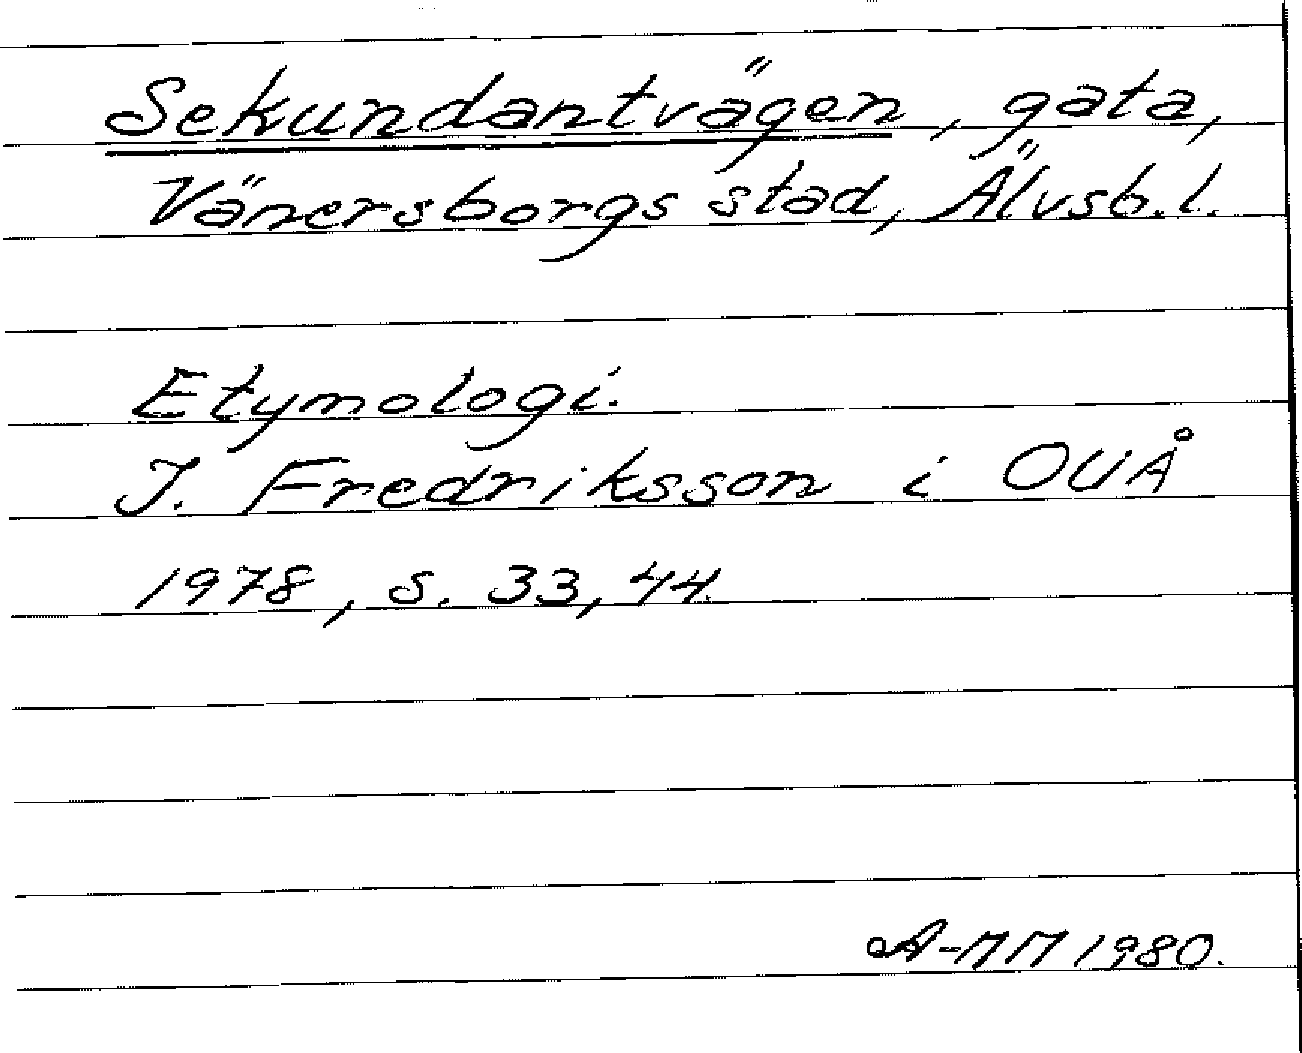 Sekundantvägen, gata,
Vänersborgs stad, Älvsb.l.
Etymologi.
I. Fredriksson i OUÅ
1978, s. 33, 44.
A-MM 1980.